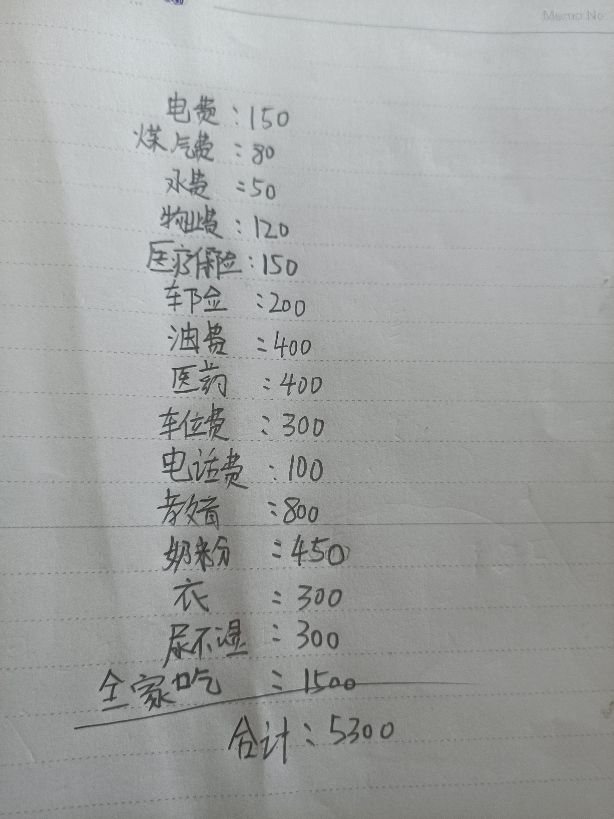 Memo No.
电费：150
煤气费：80
水费：50
物业费：120
医疗保险：150
车险：200
油费：400
医药：400
车位费：300
电话费：100
教育：800
奶粉：450
衣：300
尿不湿：300
全家吃：1500
合计：5300